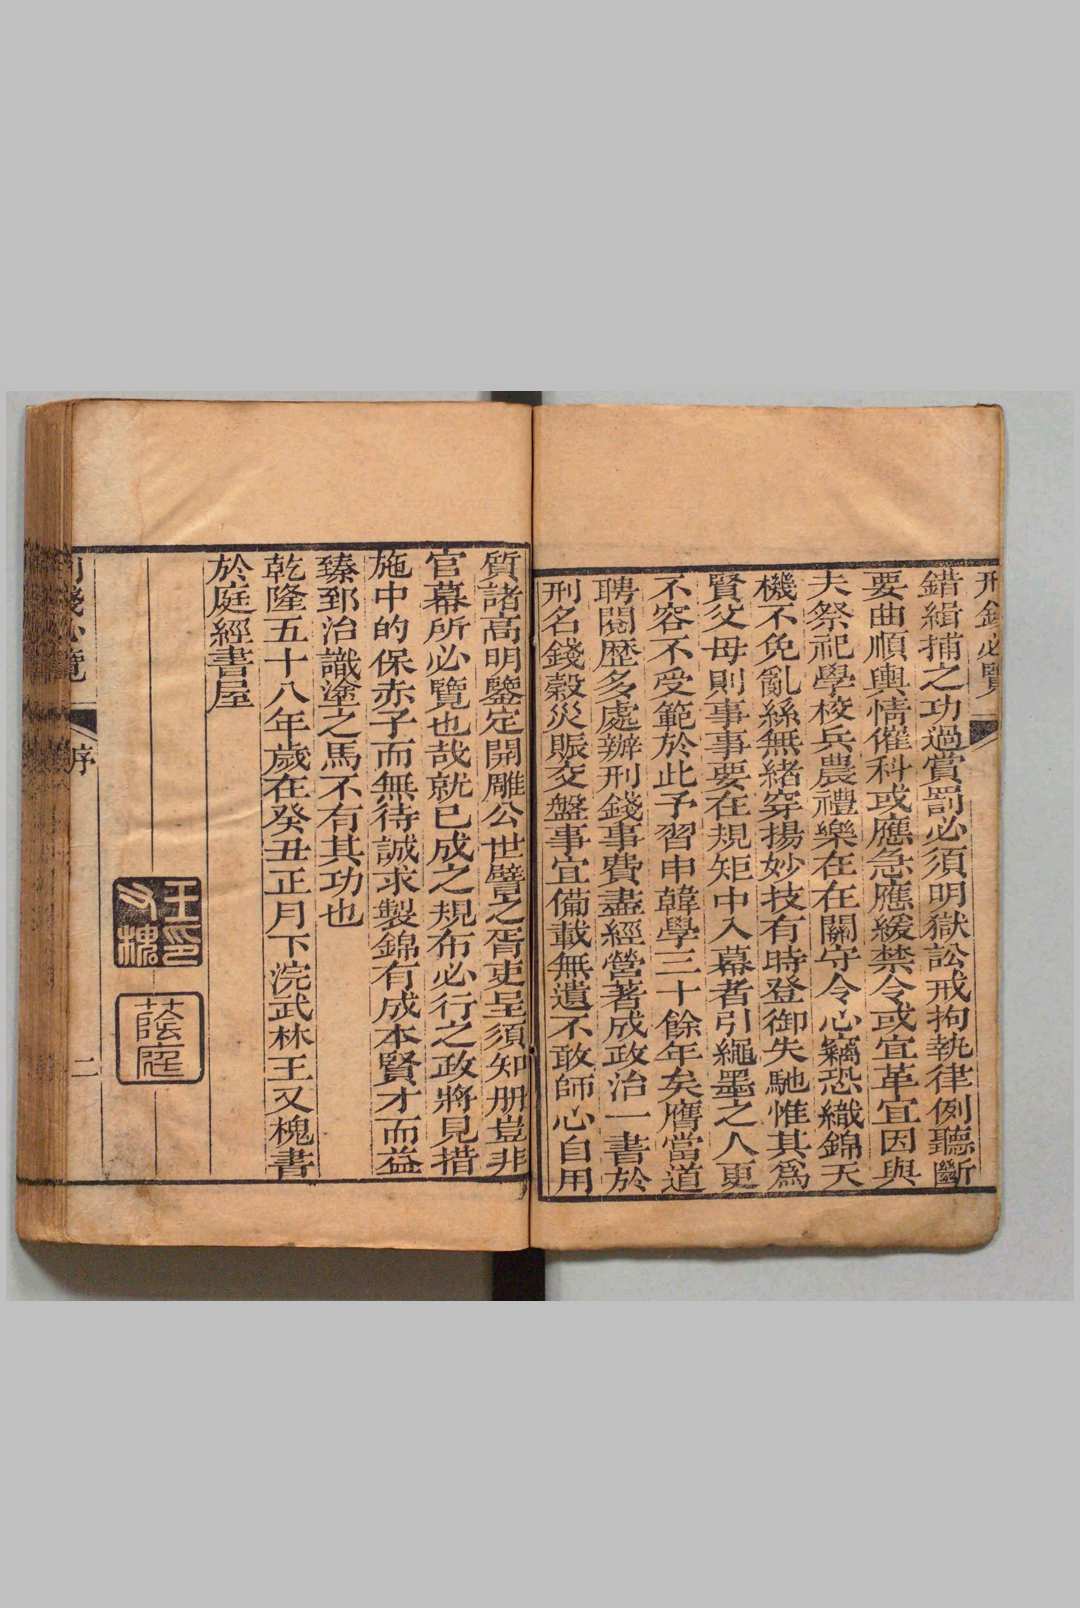 刑錢必覽
錯緝捕之功過賞罰必須明獄訟戒拘執律例聽斷
要曲順輿情催科或應急應緩禁令或宜革宜因與
夫祭祀學校兵農禮樂在在關守令心竊恐織錦天
機不免亂絲無緒穿揚妙技有時登御失馳惟其爲
賢父母則事事要在規矩中入幕者引繩墨之人更
不容不受範於此予習申韓學三十餘年矣膺當道
聘閱歷多處辦刑錢事費盡經營著成政治一書於
刑名錢穀災賑交盤事宜備載無遺不敢師心自用
質諸高明鑒定開雕公世譬之胥吏呈須知册豈非
官幕所必覽也哉就已成之規布必行之政將見措
施中的保赤子而無待誠求製錦有成本賢才而益
臻郅治識塗之馬不有其功也
乾隆五十八年歲在癸丑正月下浣武林王又槐書
於庭經書屋
王印又槐
蔭庭
刑錢必覽
序
二